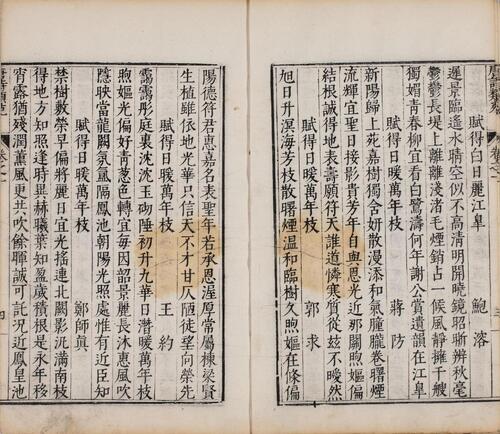 賦得白日麗江皋 鮑溶
遲景臨遙水晴空似不高清明開曉鏡昭晰辨秋毫
鬱鬱長堤上離離淺渚毛煙銷占一候風靜擁千艘
獨媚青春柳宜看白鷺濤何年謝公賞遺韻在江皋
賦得日暖萬年枝 蔣防
新陽歸上苑嘉樹獨含妍散漫添和氣朣朧卷曙煙
流輝宜聖日接影貴芳年自與恩光近那關煦嫗偏
結根誠得地表壽願符天誰道憐寒質從玆不曖然
賦得日暖萬年枝 郭求
旭日升溟海芳枝散曙煙溫和臨樹久煦嫗在條偏
陽德符君惠嘉名表聖年若承恩渥厚常屬棟梁賢
生植雖依地光華只信天不才甘仄陋徒望向榮先
賦得日暖萬年枝 王約
靄靄彤庭裏沈沈玉砌陲初升九華日潛暖萬年枝
煦嫗光偏好青蔥色轉宜每因韶景麗長沐惠風吹
隱映當龍闕氛氳隔鳳池朝陽光照處惟有近臣知
賦得日暖萬年枝 鄭師貞
禁樹敷榮早偏將麗日宜光搖連北闕影泛滿南枝
得地方知照逢時異赫曦葉知盈歲積根是永年移
宵露猶殘潤薰風更共吹餘暉誠可託況近鳳皇池